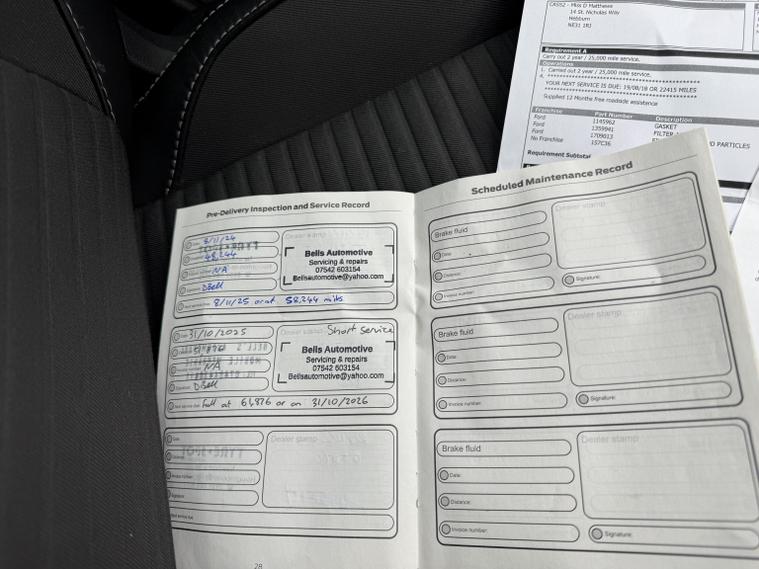 CAS52 - Miss D Matthews
14 St. Nicholas Way
Hebburn
NE31 1RJ
Requirement A
Carry out 2 year / 25,000 mile service.
Operations
1. Carried out 2 year / 25,000 mile service.
4. **********************************
YOUR NEXT SERVICE IS DUE: 19/08/18 OR 22415 MILES
**********************************
Supplied 12 Months free roadside assistence
Franchise Part Number Description
Ford 1145962 GASKET
Ford 1359941 FILTER
Ford 1709013
No Franchise 157C36 PARTICLES
Requirement Subtotal
Pre-Delivery Inspection and Service Record
Date: 8/11/24
48,244
NA
DBell
Dealer stamp
Bells Automotive
Servicing & repairs
07542 603154
Bellsautomotive@yahoo.com
Next service due: 8/11/25 or at 58,244 miles
Date: 31/10/2025
NA
DBell
Dealer stamp Short Service
Bells Automotive
Servicing & repairs
07542 603154
Bellsautomotive@yahoo.com
Next service due: Full at 61,876 or on 31/10/2026
Date:
Signature:
Dealer stamp
Next service due:
28
Scheduled Maintenance Record
Brake fluid
Date:
Distance:
Invoice number:
Dealer stamp
Signature:
Brake fluid
Date:
Distance:
Invoice number:
Dealer stamp
Signature:
Brake fluid
Date:
Distance:
Invoice number:
Dealer stamp
Signature: